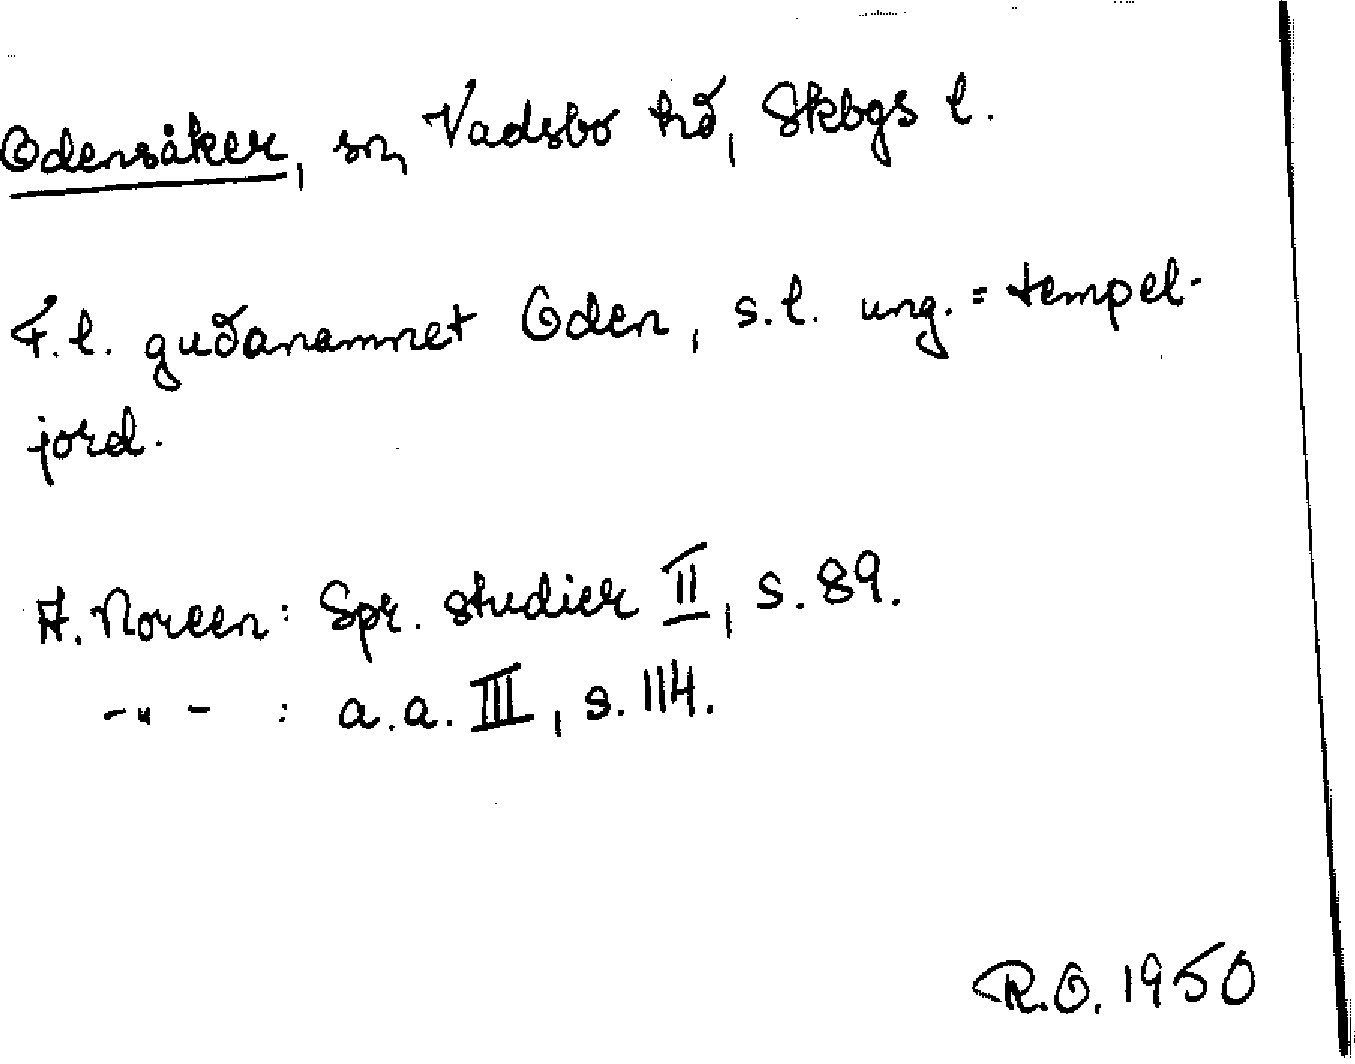 Odensåker, sn, Vadsbo hd, Skbgs l.
F.l. gudanamnet Oden, s.l. ung. = tempel-
jord.
A. Noreen: Spr. studier II, s. 89.
-"- : a.a. III, s. 114.
R.O. 1950